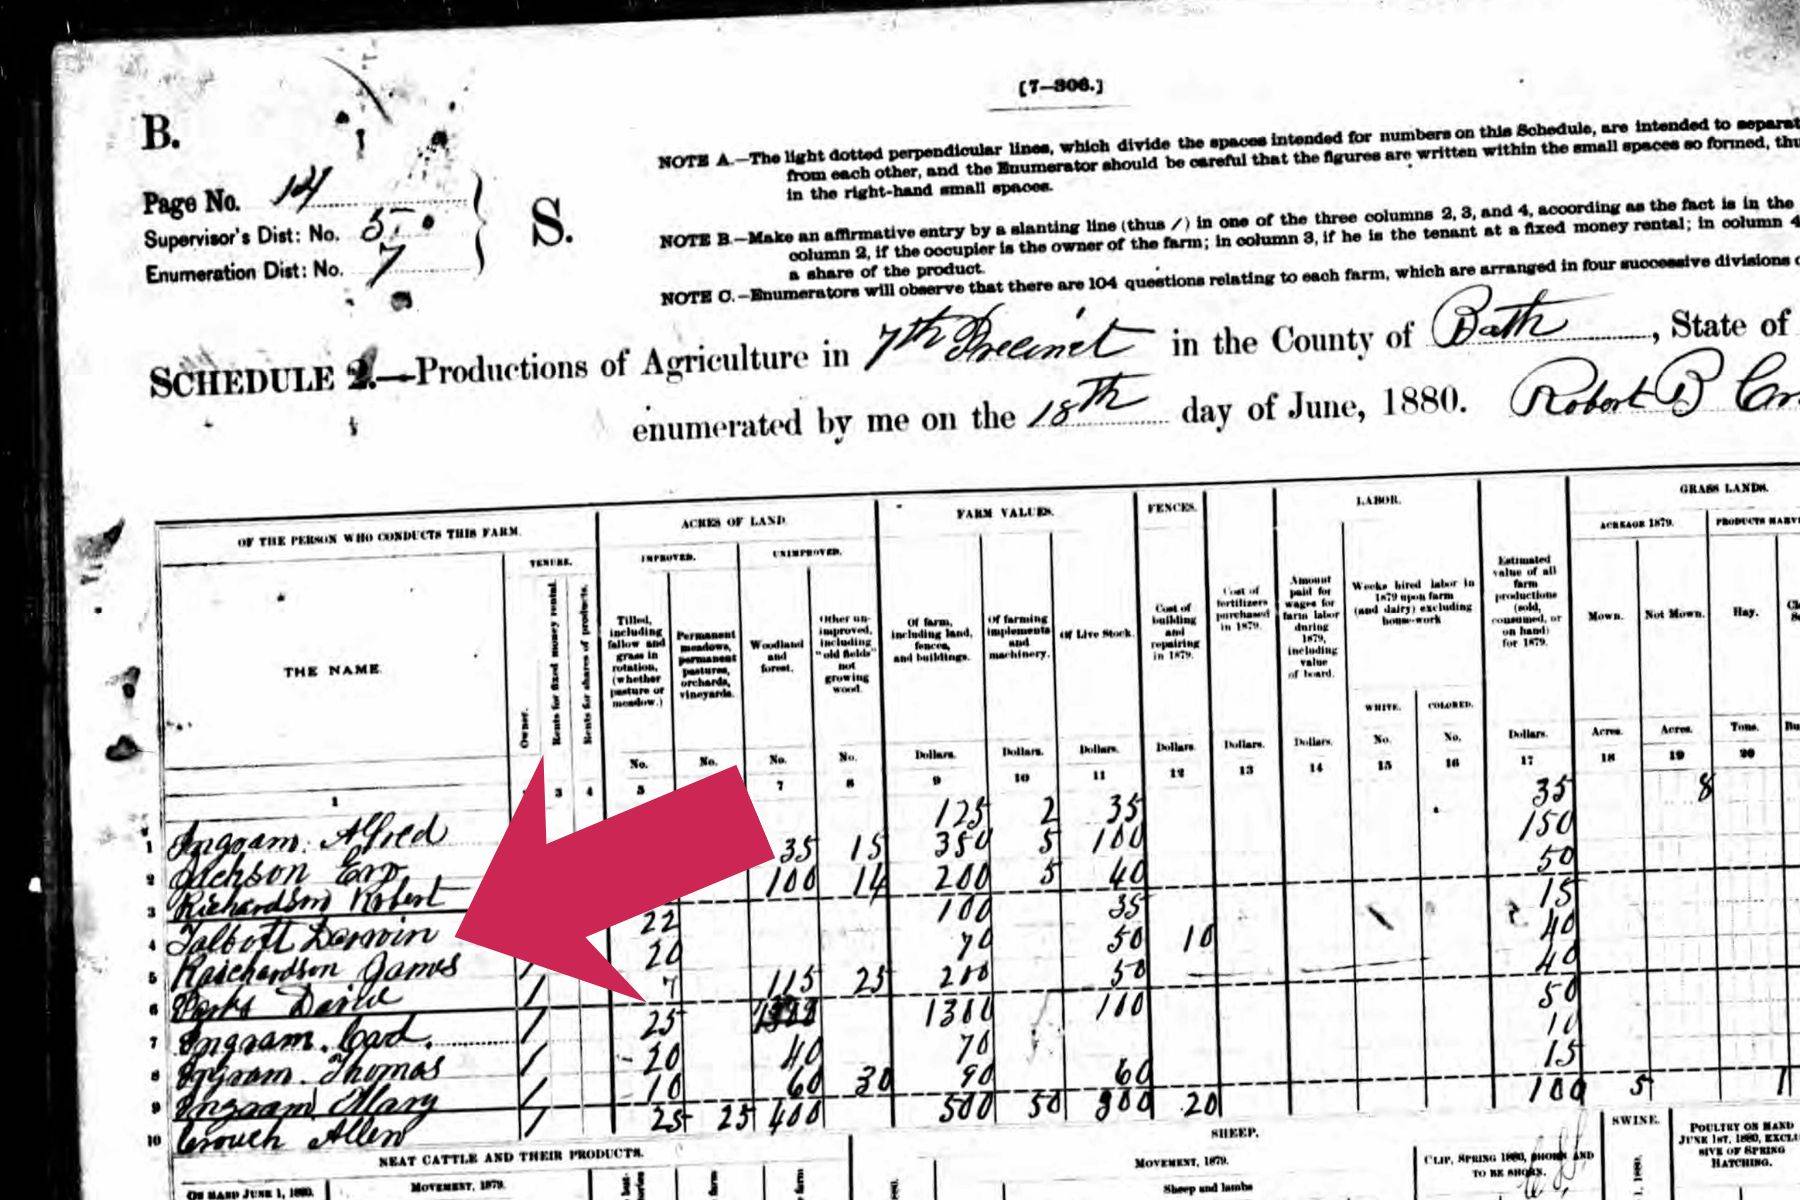 [7—306.]
B.
Page No. 14
Supervisor's Dist: No. 5
Enumeration Dist: No. 7
S.
NOTE A.—The light dotted perpendicular lines, which divide the spaces intended for numbers on this Schedule, are intended to separat
from each other, and the Enumerator should be careful that the figures are written within the small spaces so formed, thu
in the right-hand small spaces.
NOTE B.—Make an affirmative entry by a slanting line (thus /) in one of the three columns 2, 3, and 4, according as the fact is in the
column 2, if the occupier is the owner of the farm; in column 3, if he is the tenant at a fixed money rental; in column 4
a share of the product.
NOTE C.—Enumerators will observe that there are 104 questions relating to each farm, which are arranged in four successive divisions
SCHEDULE 2.—Productions of Agriculture in 7th Precinct in the County of Bath, State of
enumerated by me on the 18th day of June, 1880. Robert B
OF THE PERSON WHO CONDUCTS THIS FARM. ACRES OF LAND FARM VALUES. FENCES. LABOR. GRASS LANDS.
TENURE. IMPROVED. UNIMPROVED. ACREAGE 1879. PRODUCTS HARV
THE NAME.
Owner.
Rents for fixed money rental.
Rents for shares of products.
Tilled, including fallow and grass in rotation, (whether pasture or meadow.)
Permanent meadows, permanent pastures, orchards, vineyards.
Woodland and forest.
Other unimproved, including "old fields" not growing wood.
Of farm, including land, fences, and buildings.
Of farming implements and machinery.
Of Live Stock.
Cost of building and repairing in 1879.
Cost of fertilizers purchased in 1879.
Amount paid for wages for farm labor during 1879, including value of board.
Weeks hired labor in 1879 upon farm (and dairy) excluding house-work
WHITE. COLORED.
Estimated value of all farm productions (sold, consumed, or on hand) for 1879.
Mown. Not Mown. Hay.
No. No. No. No. Dollars. Dollars. Dollars. Dollars. Dollars. Dollars. No. No. Dollars. Acres. Acres. Tons. Bu
1 3 4 5 7 8 9 10 11 12 13 14 15 16 17 18 19 20
1 Ingram. Alfred 125 2 35 35 8
2 Jackson 35 15 350 5 100 150
3 Richardson Robert 100 14 200 5 40 50
4 Talbott Derwin 22 100 35 15
5 Raichardson James / 20 70 50 10 40
6 / 7 115 25 200 50 40
7 Ingram. / 25 1300 100 50
8 Ingram. Thomas / 20 40 70 10
9 Ingraam Mary / 10 60 30 90 60 15
10 Crouch Allen / 25 25 400 500 50 300 20 100 5 1
NEAT CATTLE AND THEIR PRODUCTS. SHEEP. SWINE. POULTRY ON HAND JUNE 1ST, 1880, EXCLUSIVE OF SPRING HATCHING.
ON HAND JUNE 1, 1880. MOVEMENT, 1879. MOVEMENT, 1879. CLIP, SPRING 1880, SHORN AND TO BE SHORN.
Sheep and lambs